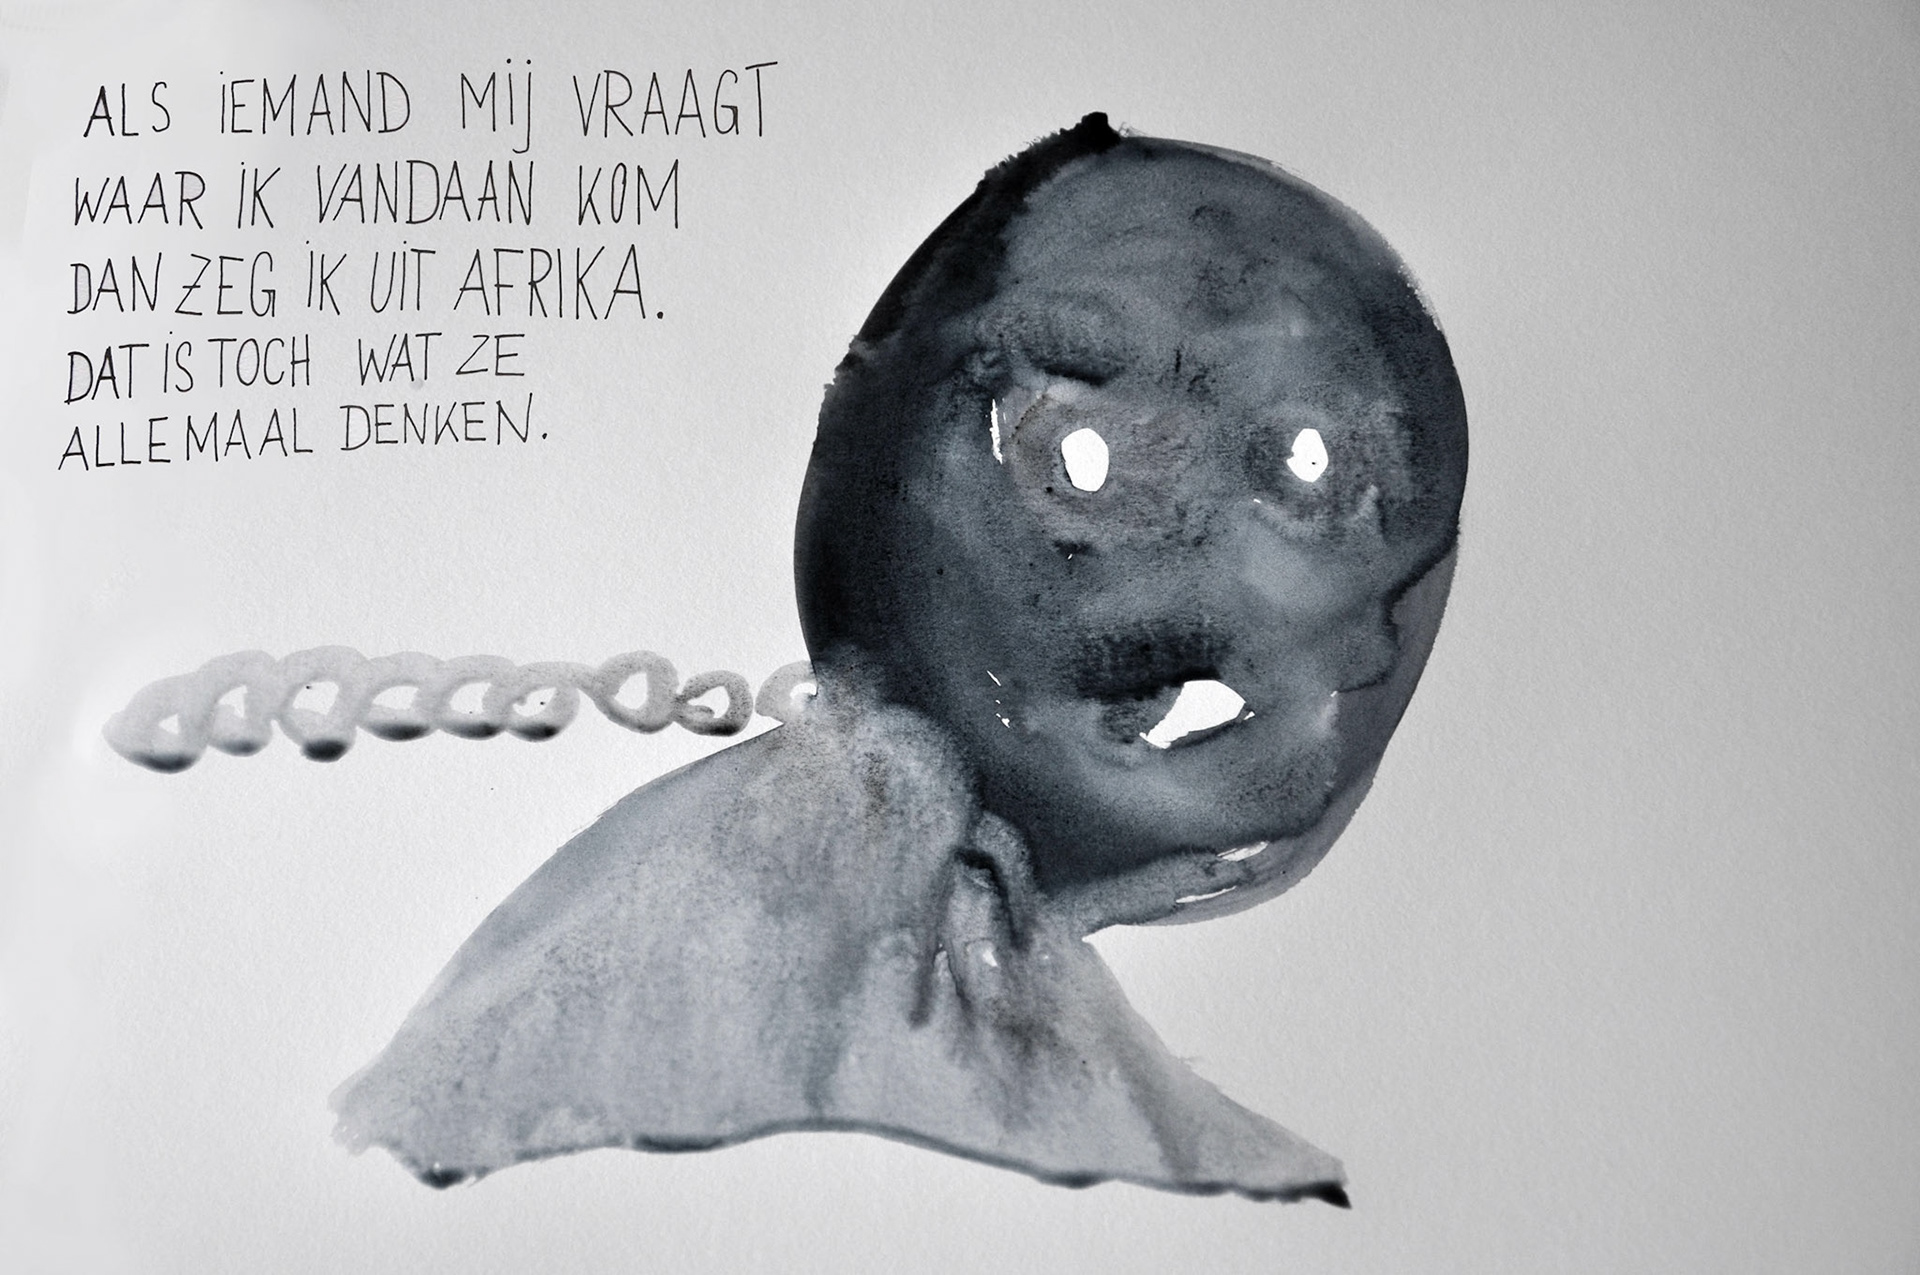 ALS IEMAND MIJ VRAAGT
WAAR IK VANDAAN KOM
DAN ZEG IK UIT AFRIKA.
DAT IS TOCH WAT ZE
ALLEMAAL DENKEN.